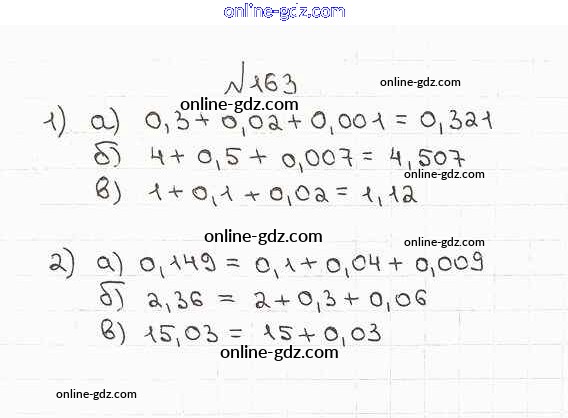 online-gdz.com
№163
online-gdz.com
online-gdz.com
1) а) 0,3 + 0,02 + 0,001 = 0,321
б) 4 + 0,5 + 0,007 = 4,507
online-gdz.com
в) 1 + 0,1 + 0,02 = 1,12
online-gdz.com
online-gdz.com
2) а) 0,149 = 0,1 + 0,04 + 0,009
б) 2,36 = 2 + 0,3 + 0,06
в) 15,03 = 15 + 0,03
online-gdz.com
online-gdz.com